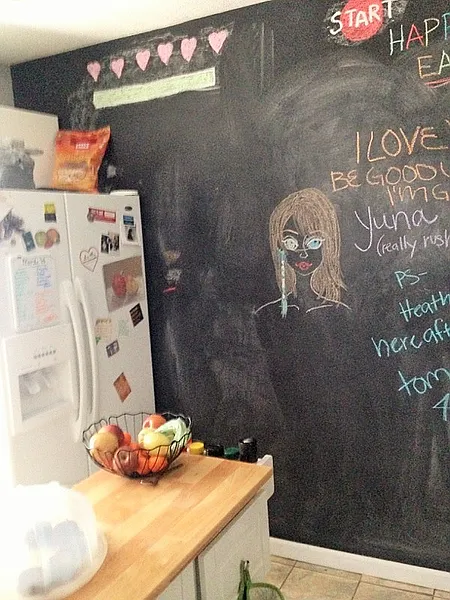 START
HAPP
EA
I LOVE
BE GOOD
I'M G
Yuna
(really rush
PS-
Heath
hereaft
tom
4